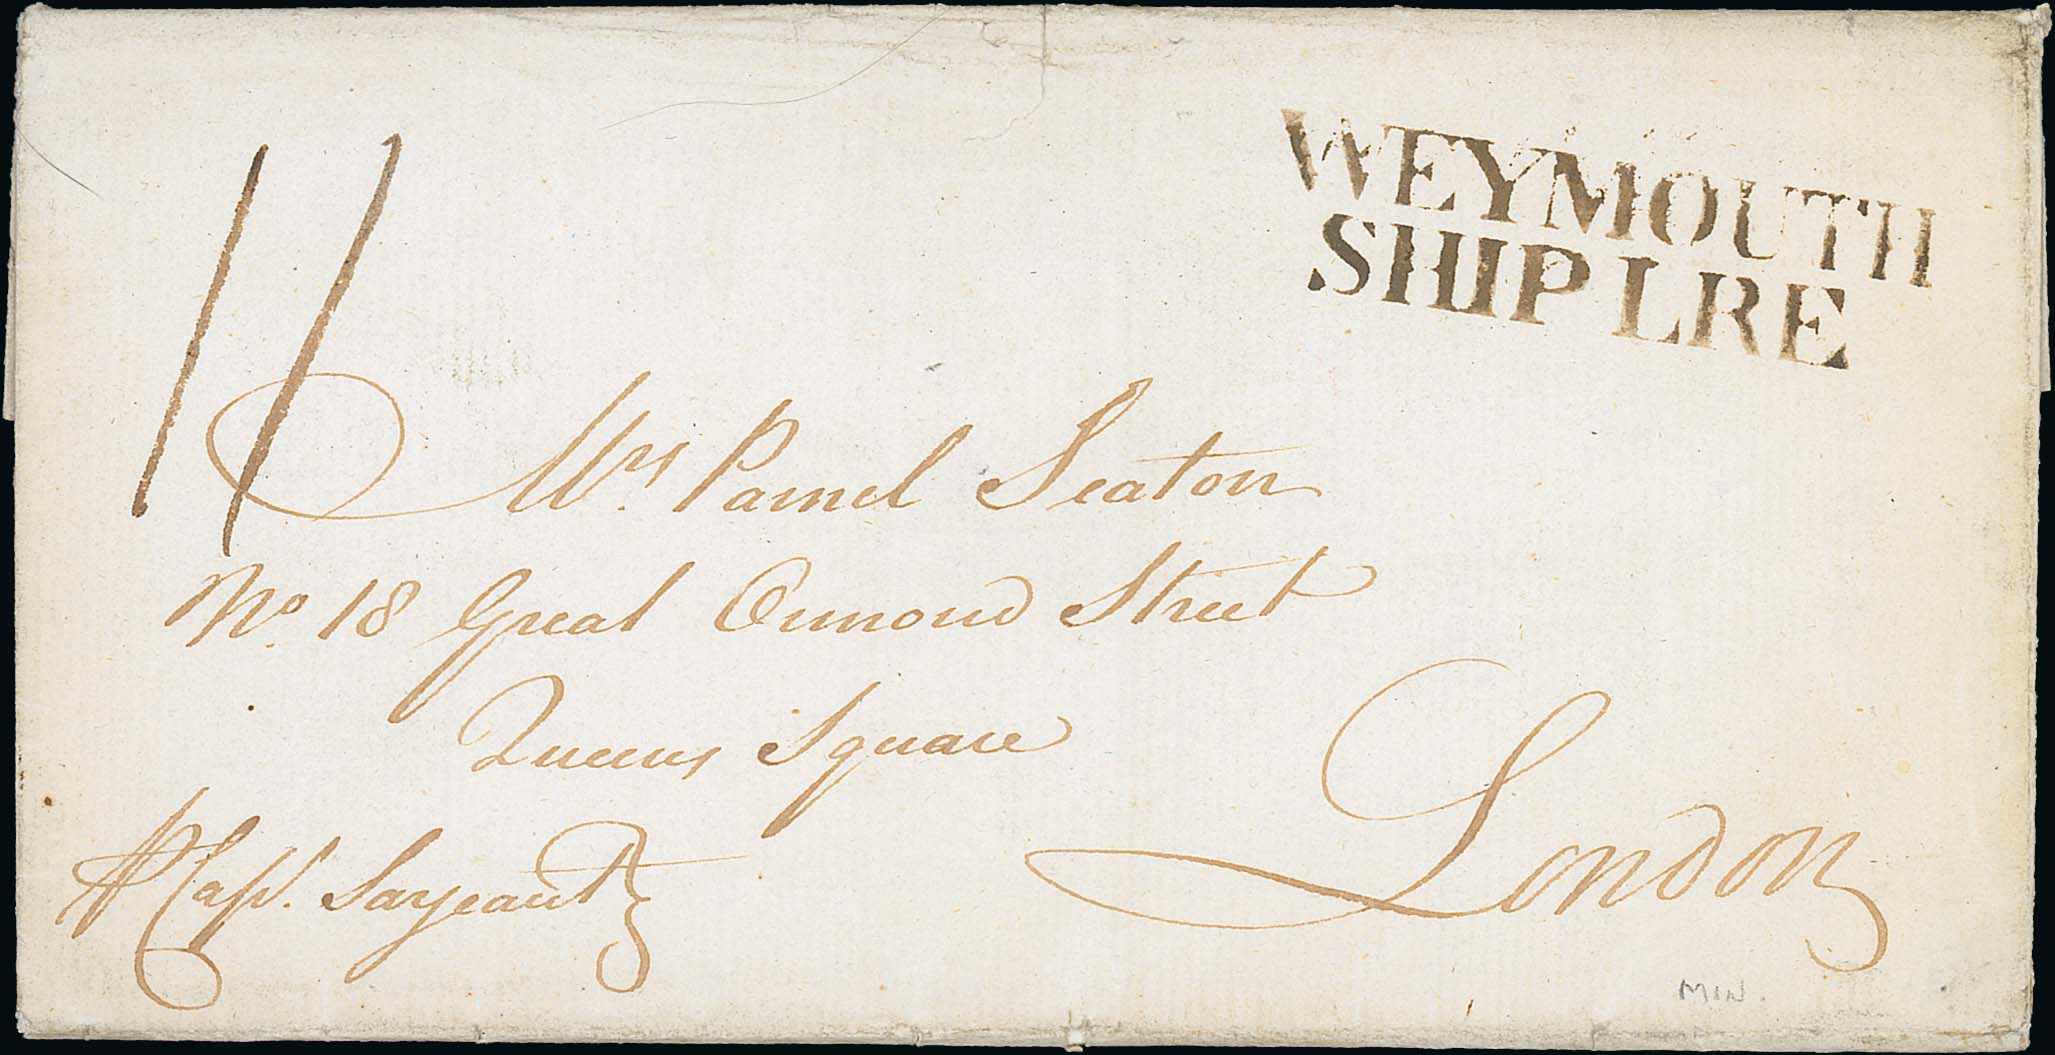 WEYMOUTH
SHIP LRE
11
Mrs. Pamel Seaton
No. 18 Great Ormond Street
Queens Square
London
Capt. Sarjeant
MIN.